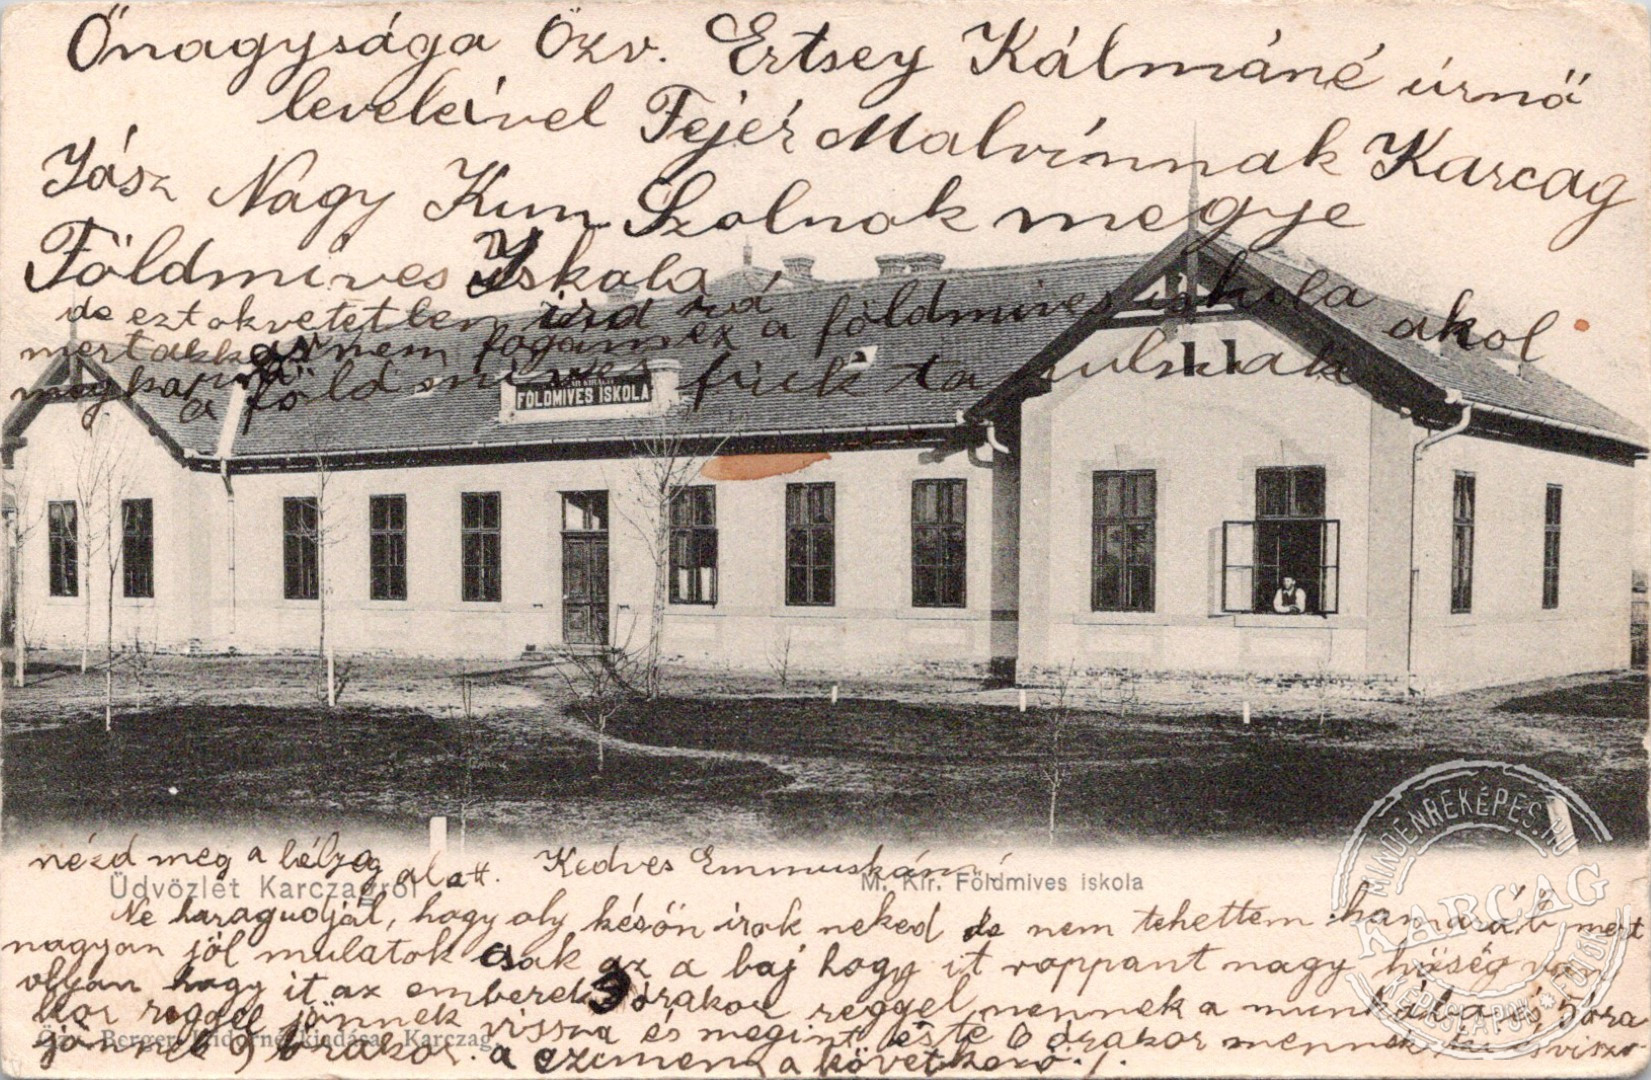 Őnagysága Özv. Ertsey Kálmáné úrnő
leveleivel Fejér Malvinnak Karcag
Jász Nagy Kun Szolnok megye
Földmives Iskola
de ezt okvetetlen ird rá
mert akkor nem fogom ez a földmives iskola akol
megkapni a földmives fiuk tanulnak
FÖLDMIVES ISKOLA
nézd meg a bélyeg alatt. Kedves Emmuskám
Üdvözlet Karczagról
M. Kir. Földmives iskola
Ne haragudjál, hogy oly későn irok neked de nem tehettem hamarább mert
nagyon jól mulatok csak az a baj hogy it roppant nagy hőség van
ollyan hogy it az emberek 3 órakor reggel mennek a munkába és 5 óra
kor reggel jönnek vissza és megint este 6 órakor mennek ki és visza
jönnek 9 órakor. a czimem a következő
Özv. Berger Nándorné kiadása, Karczag.
MINDENREKÉPES.HU
KARCAG
KÉPESLAPOK * FOTÓK